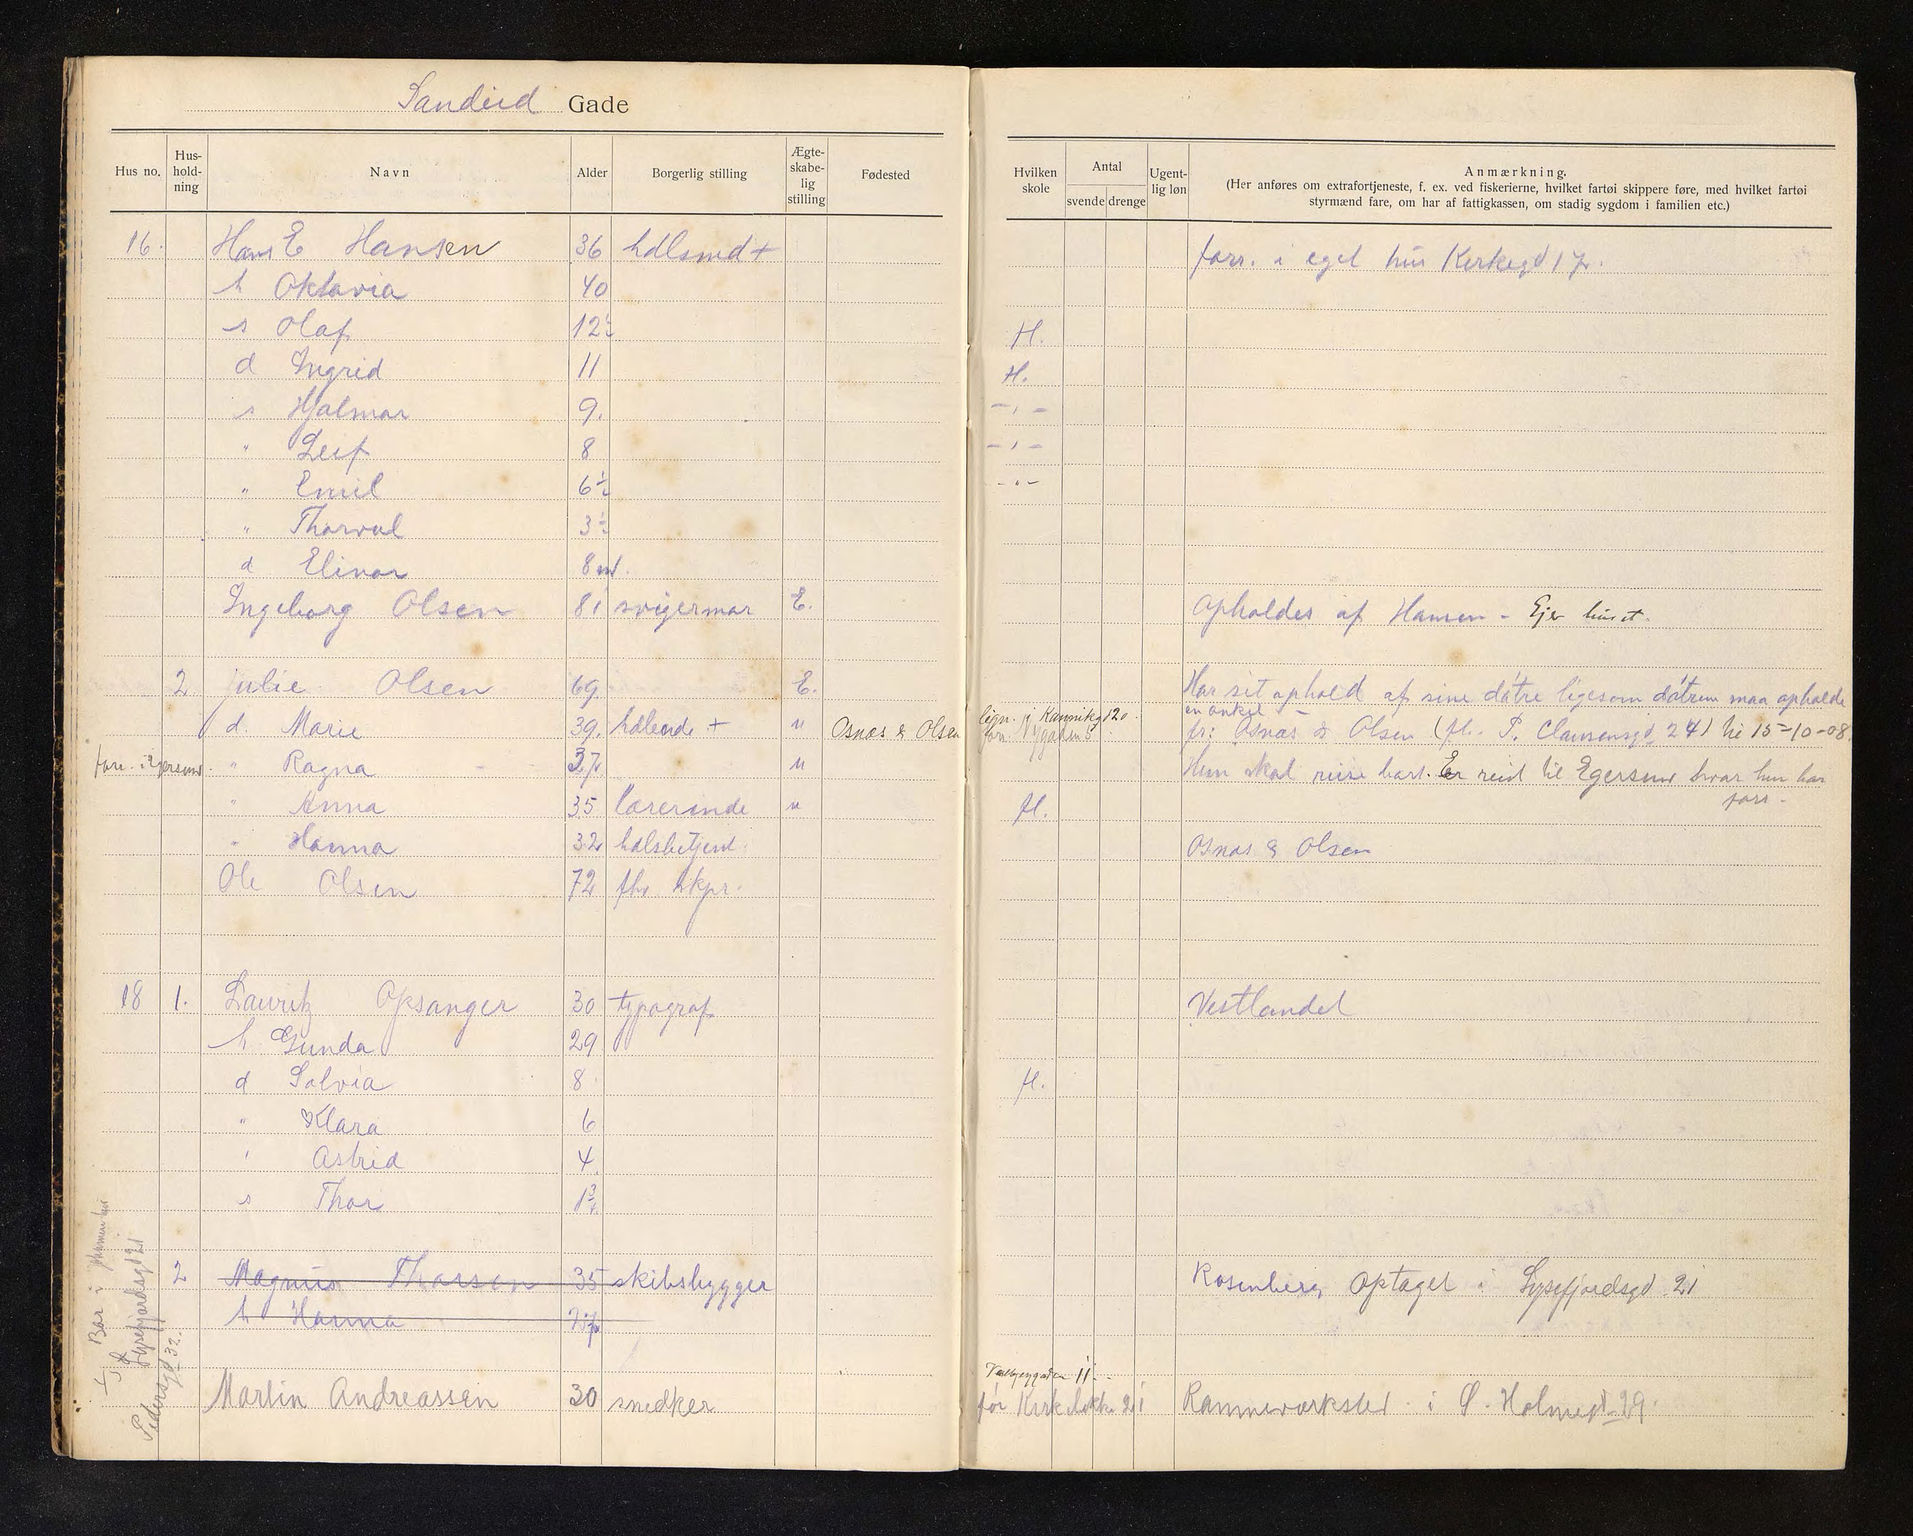 Sandeid Gade
Hus no. Hus-hold-ning Navn Alder Borgerlig stilling Ægte-skabe-lig stilling Fødested Hvilken skole Antal svende drenge Ugent-lig løn Anmærkning.
(Her anføres om extrafortjeneste, f. ex. ved fiskerierne, hvilket fartøi skippere føre, med hvilket fartøi
styrmænd fare, om har af fattigkassen, om stadig sygdom i familien etc.)
16. Hans E Hansen 36 hdlsmd + forr. i eget hus Kirkegd 17.
h Oktavia 40
s Olaf 12½ H.
d Ingrid 11 H.
s Hjalmar 9. - " -
" Leif 8 - " -
" Emil 6½ - " -
" Thorval 3½
d Elinor 8 md.
Ingeborg Olsen 81 svigermor E. Opholdes af Hansen - Ejer huset.
2 Julie Olsen 69. E. Har sit ophold af sine døtre ligesom døtrene maa opholde
en onkel
d. Marie 39. hdlende + u Osnæs & Olsen lign. Kannikgd 20. forr. Nygaden fr: Osnæs & Olsen (fh. P. Clausensgd 24) til 15-10-08.
forr. i Egersund. " Ragna 37. u Hun skal reise bort. Er reist til Egersund hvor hun har
forr.
" Anna 35 lærerinde u H.
" Hanna 32 hdlsbetjent Osnæs & Olsen
Ole Olsen 72 fhv skpr.
18 1. Lauritz Opsanger 30 typograf Vestlandet
h Gunda 29
d Solvia 8 H.
" Klara 6
" Astrid 4
s Thor 1¾
2 Magnus Thorsen 35 skibsbygger Rosenberg Optaget i Lysefjordsgd 21
h Hanna
Bor i
Lysefjordsgd 21
Pedersgd 32.
11
Martin Andreassen 30 snedker før 21 Rammeværksted i Ø. Holmegd 29.